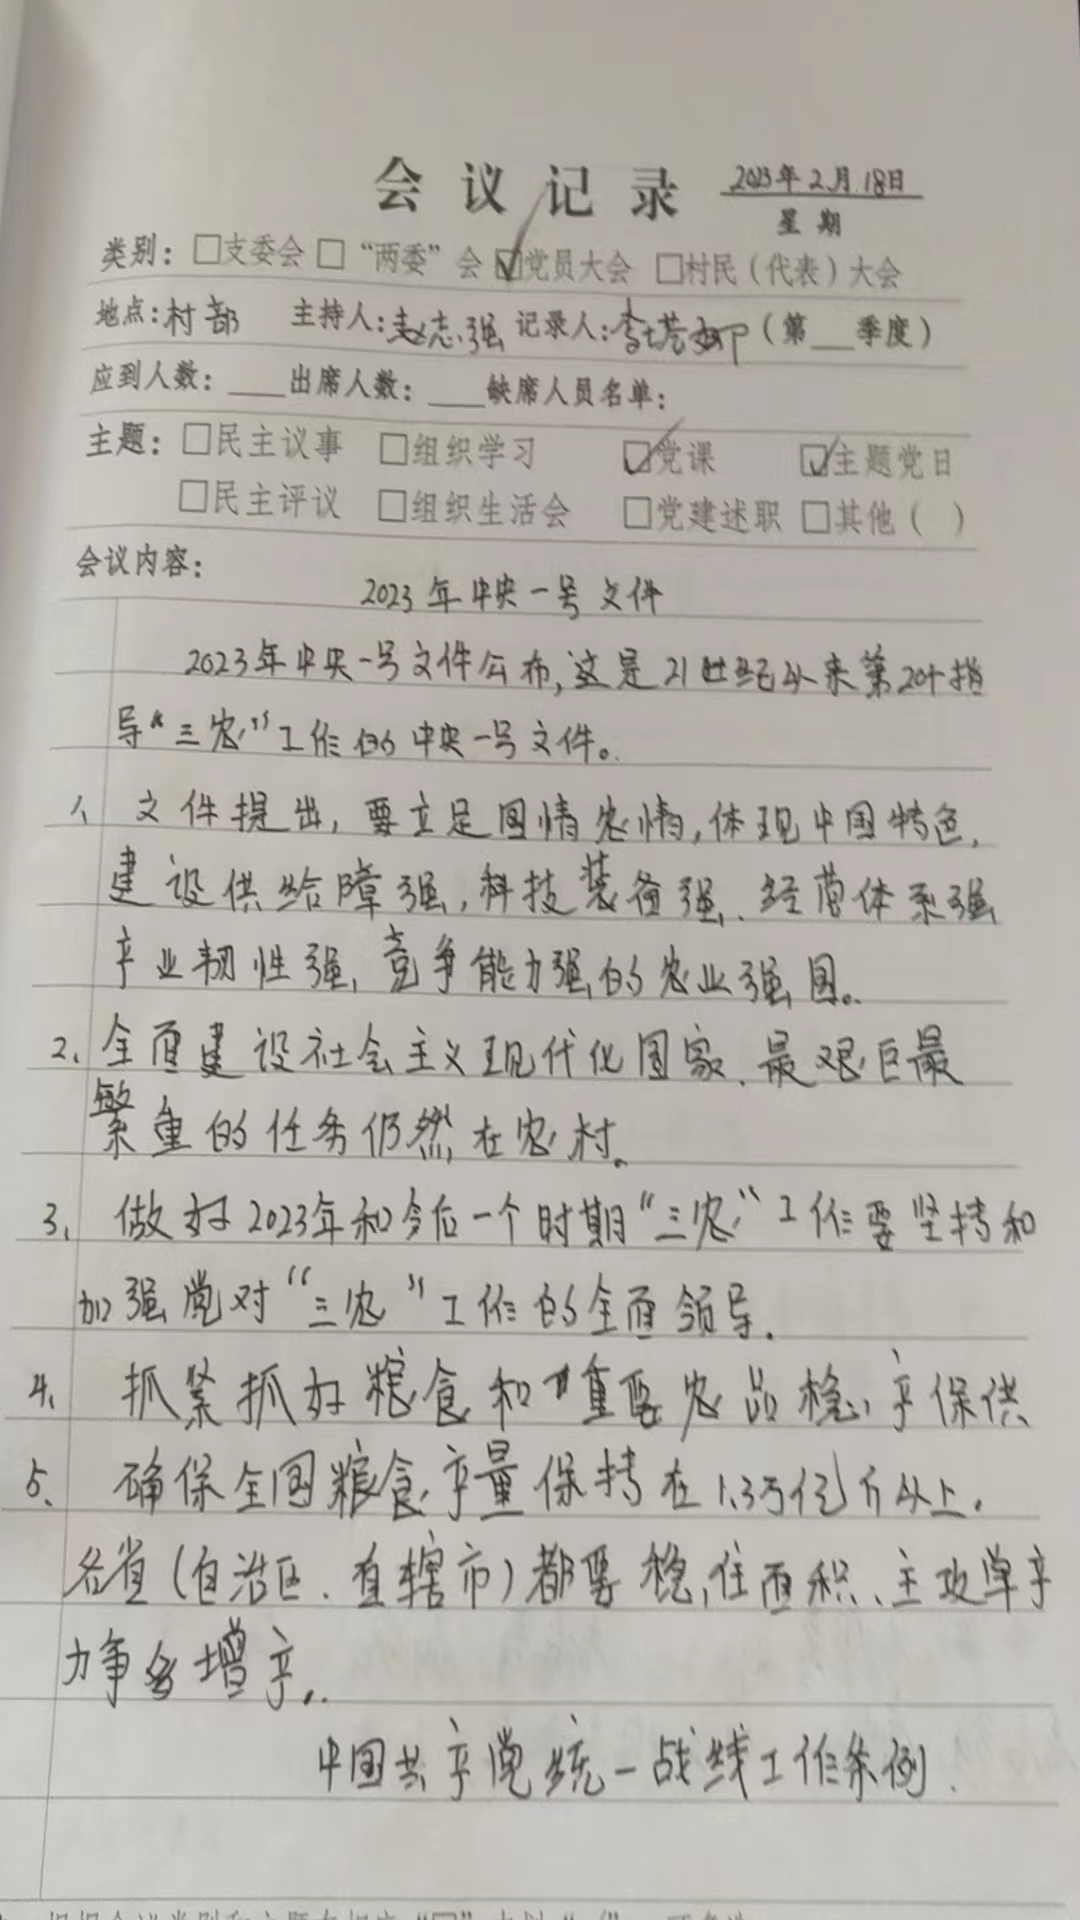 会议记录 2023年2月18日
星期
类别：□支委会 □“两委”会 ☑党员大会 □村民（代表）大会
地点：村部 主持人：赵志强 记录人：李塔娜（第__季度）
应到人数：____出席人数：____缺席人员名单：
主题：□民主议事 □组织学习 ☑党课 ☑主题党日
□民主评议 □组织生活会 □党建述职 □其他（ ）
会议内容：
2023年中央一号文件
2023年中央一号文件公布，这是21世纪以来第20个指
导“三农”工作的中央一号文件。
1、文件提出，要立足国情农情，体现中国特色，
建设供给障强，科技装备强、经营体系强
产业韧性强、竞争能力强的农业强国。
2、全面建设社会主义现代化国家、最艰巨最
繁重的任务仍然在农村。
3、做好2023年和今后一个时期“三农”工作要坚持和
加强党对“三农”工作的全面领导。
4、抓紧抓好粮食和重要农品稳产保供
5、确保全国粮食产量保持在1.3万亿斤以上。
各省（自治区、直辖市）都要稳住面积、主攻单产
力争多增产。
中国共产党统一战线工作条例.